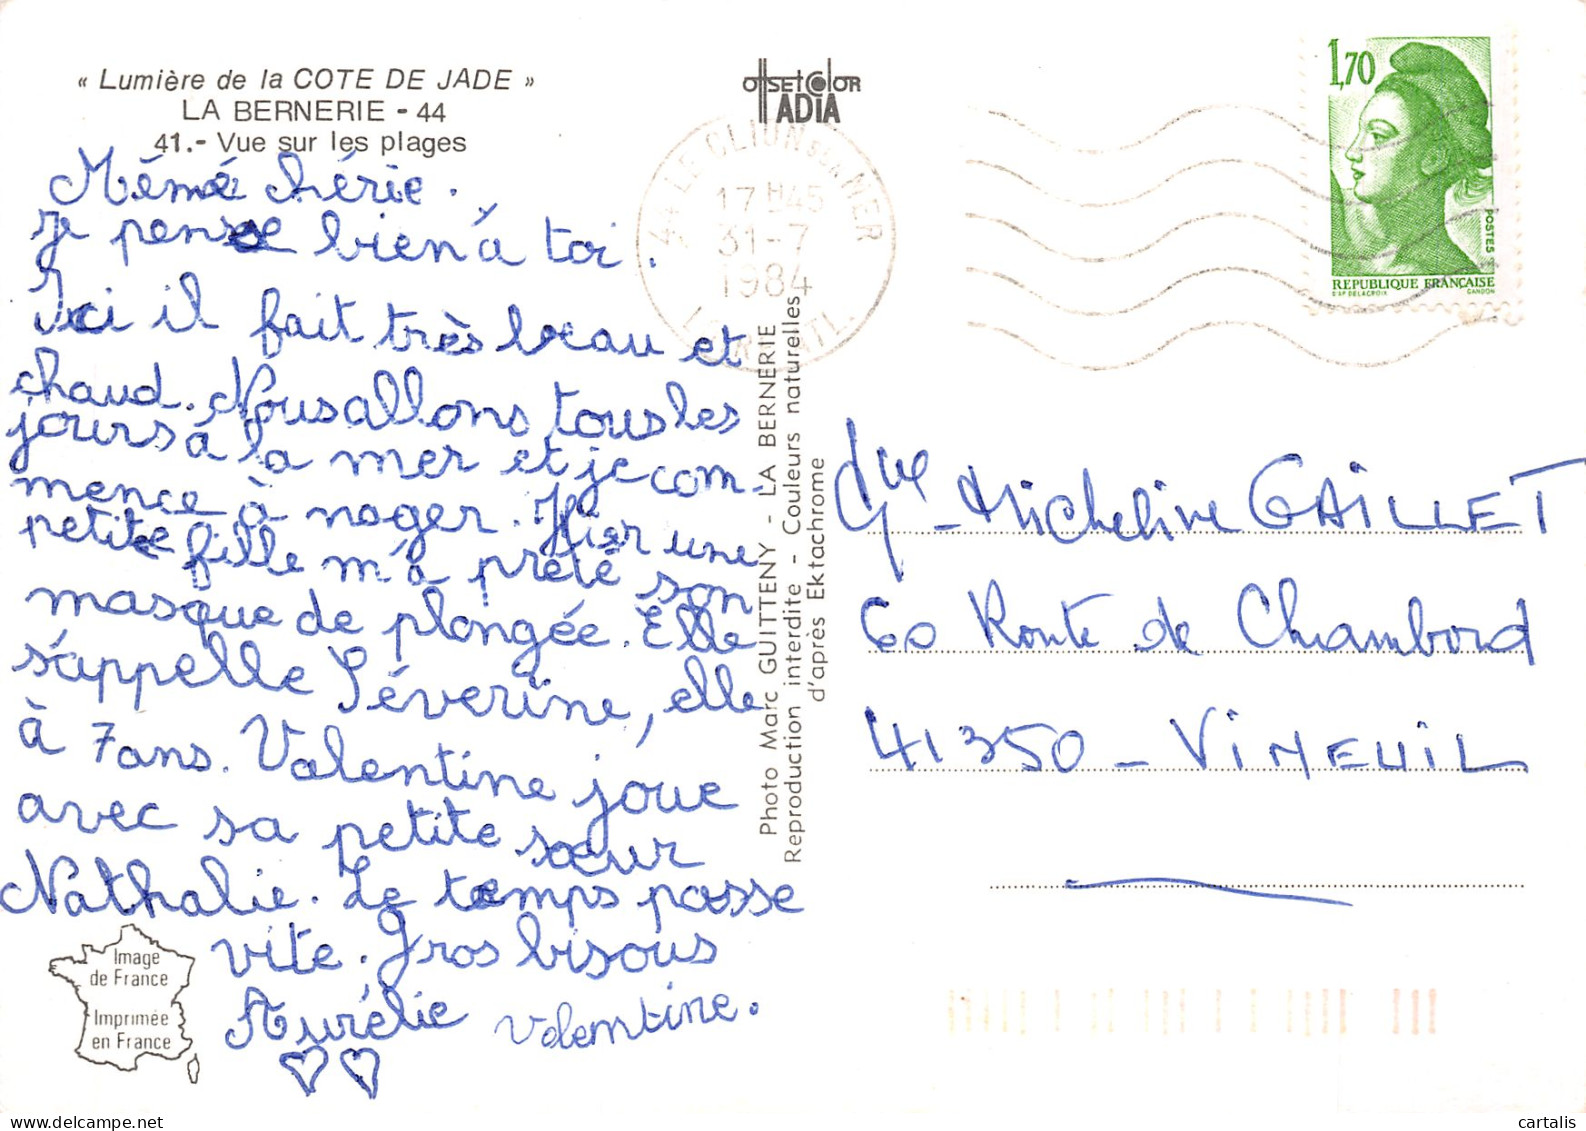 « Lumière de la COTE DE JADE »
LA BERNERIE - 44
41.- Vue sur les plages
Mémé chérie.
Je pense bien à toi.
Ici il fait très beau et
chaud. Nous allons tous les
jours à la mer et je com-
mence à nager. Hier une
petite fille m'a prêté son
masque de plongée. Elle
s'appelle Séverine, elle
à 7 ans. Valentine joue
avec sa petite sœur
Nathalie. Le temps passe
vite. Gros bisous
Aurélie Valentine.
Image
de France
Imprimée
en France
offset color
ADIA
44 LE CLION S MER
17H45
31-7
1984
Photo Marc GUITTENY - LA BERNERIE
Reproduction interdite - Couleurs naturelles
d'après Ektachrome
1,70
POSTES
REPUBLIQUE FRANÇAISE
D'AP DELACROIX GANDON
Micheline GAILLET
60 Route de Chambord
41350 - VINEUIL
cartalis